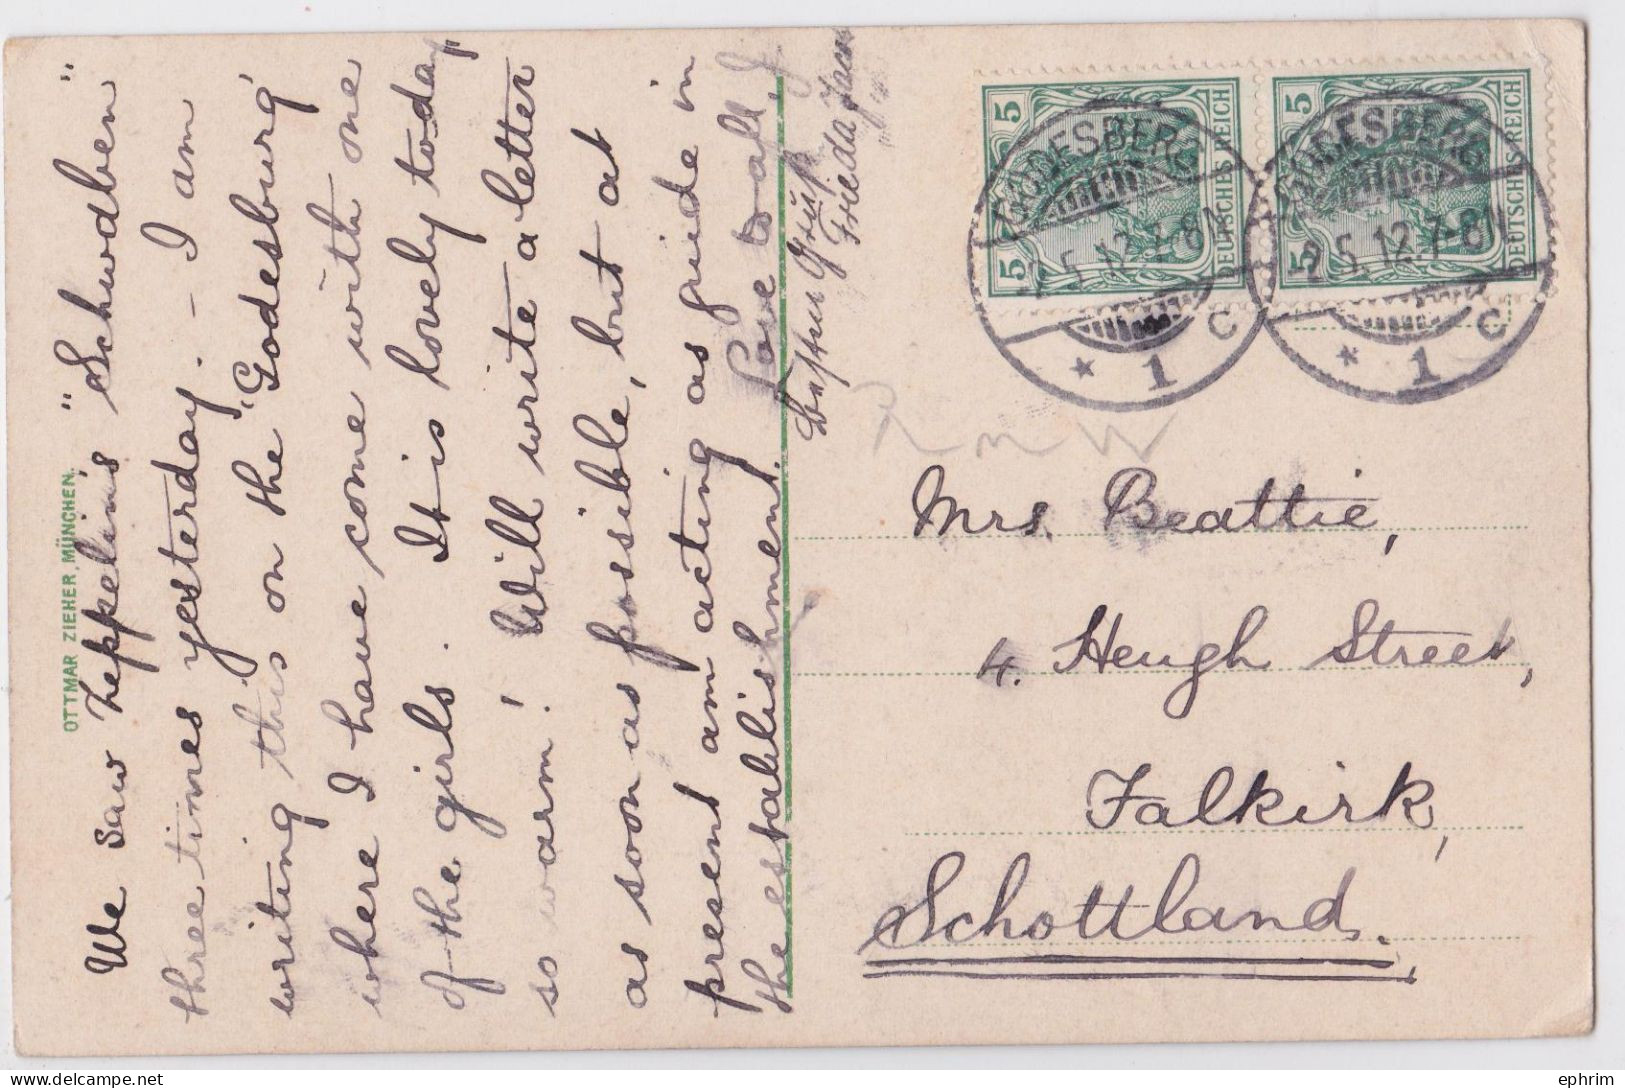 We saw Zeppelin's "Schwaben"
three times yesterday. - I am
writing this on the "Godesburg"
where I have come with one
of the girls. It is lovely today,
so warm! Will write a letter
as soon as possible, but at
present am acting as guide in
the establishment. Love to all J.
Besten Gruß
Frieda
Mrs. Beattie,
4. Heugh Street,
Falkirk,
Schottland.
OTTMAR ZIEHER, MÜNCHEN.
5 5 DEUTSCHES REICH
5 5 DEUTSCHES REICH
GODESBERG
-2.5.12.7-8N
* 1 C
GODESBERG
-2.5.12.7-8N
* 1 C
ephrim